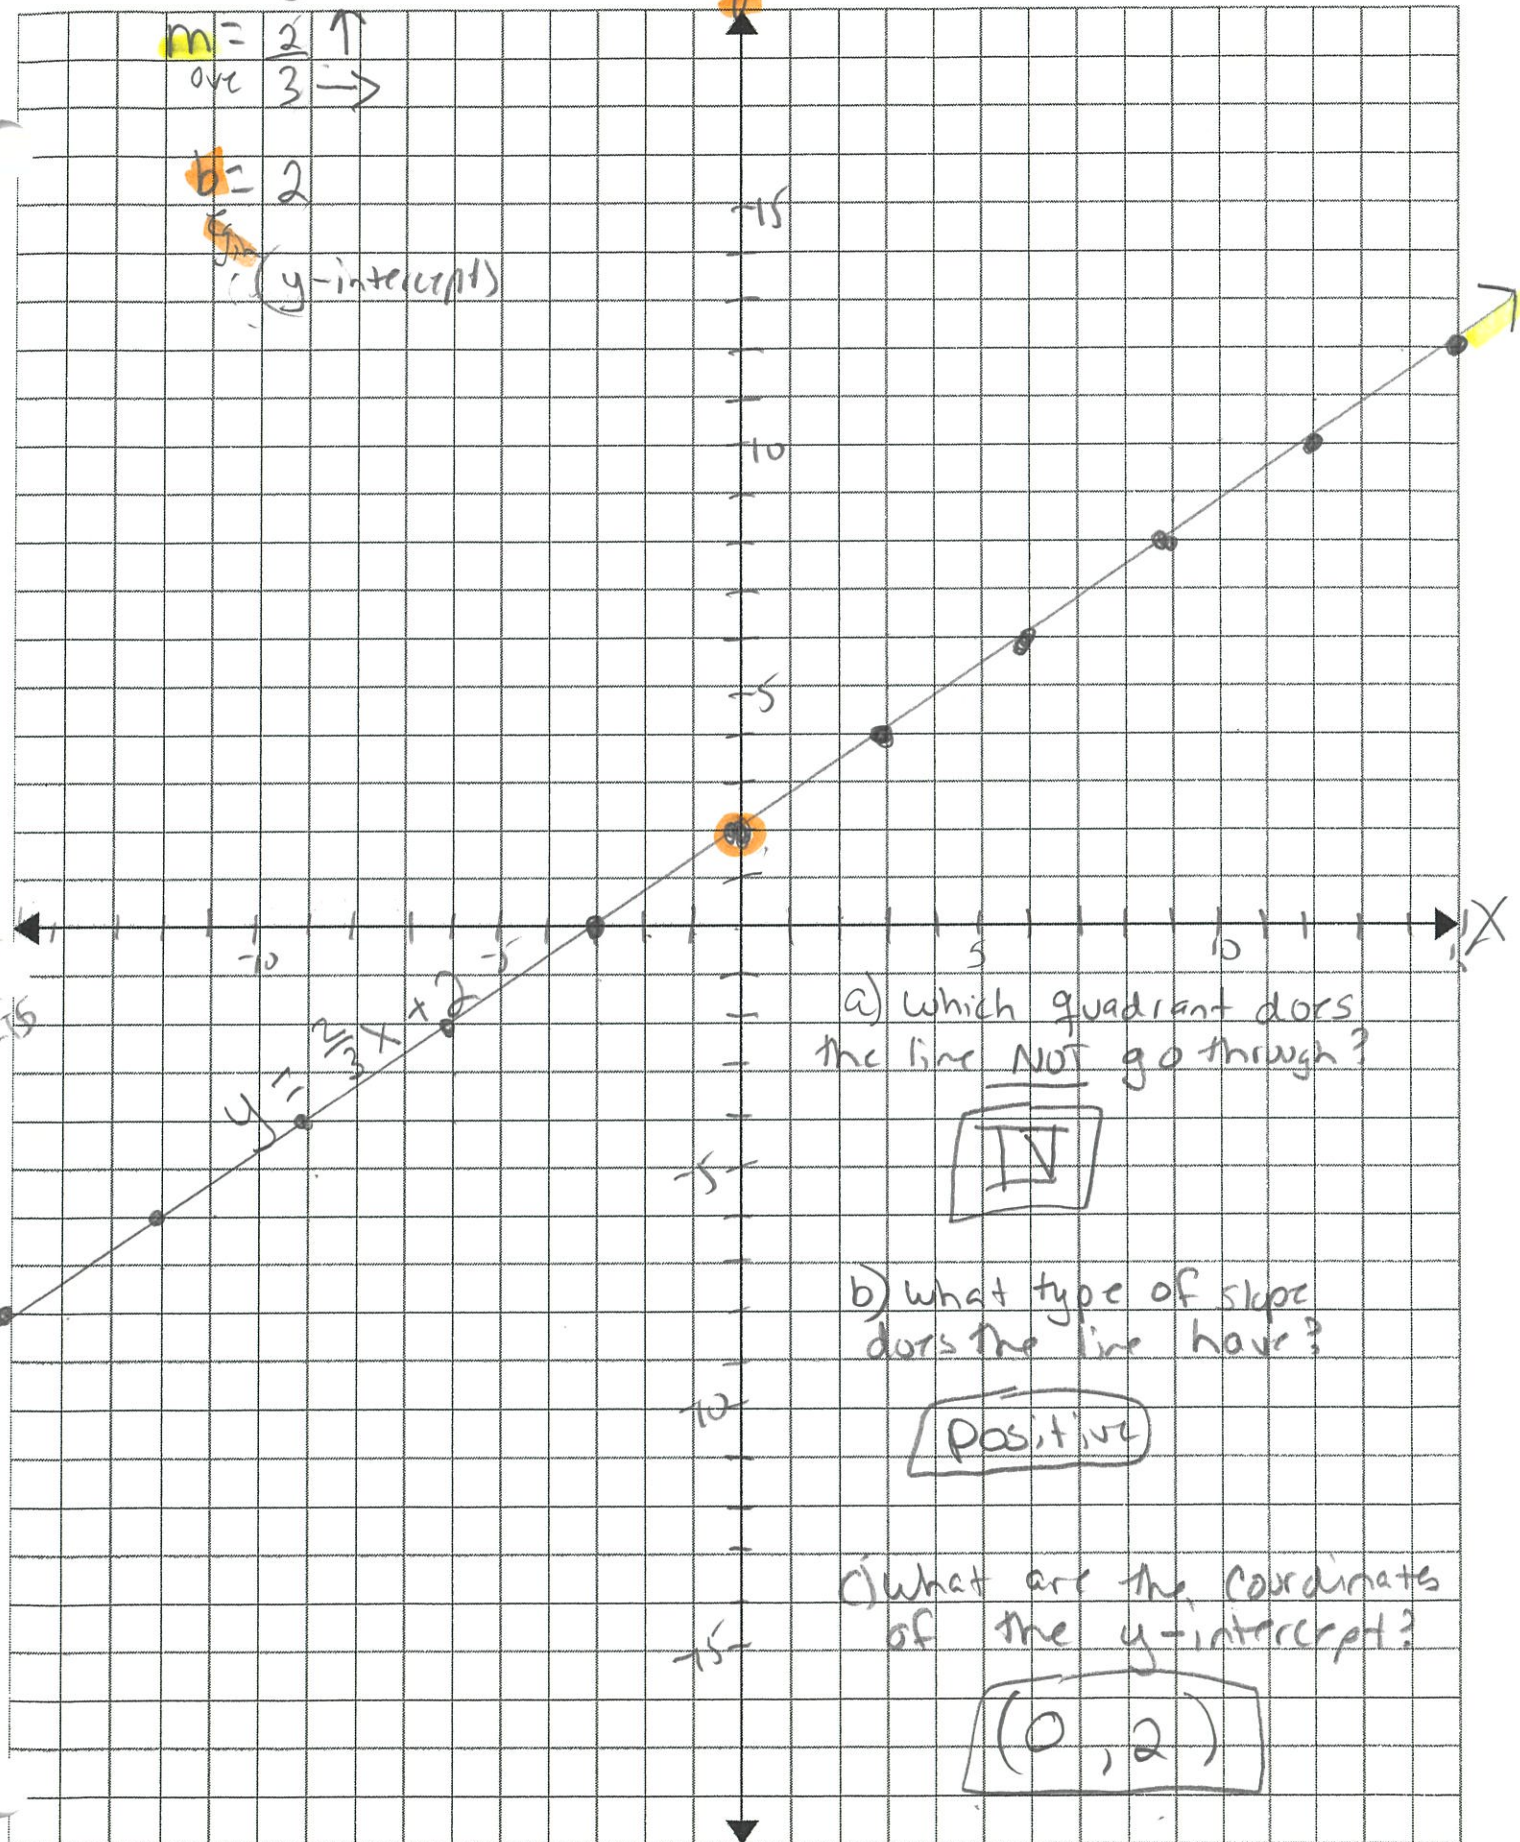 m = 2 ↑
ove 3 →
b = 2
egin
(y-intercept)
15
10
5
X
-15
-10
-5
5
10
15
y = 2/3 x + 2
a) which quadrant does
the line NOT go through?
IV
-5
b) what type of slope
does the line have?
-10
positive
c) what are the coordinates
of the y-intercept?
-15
(0, 2)